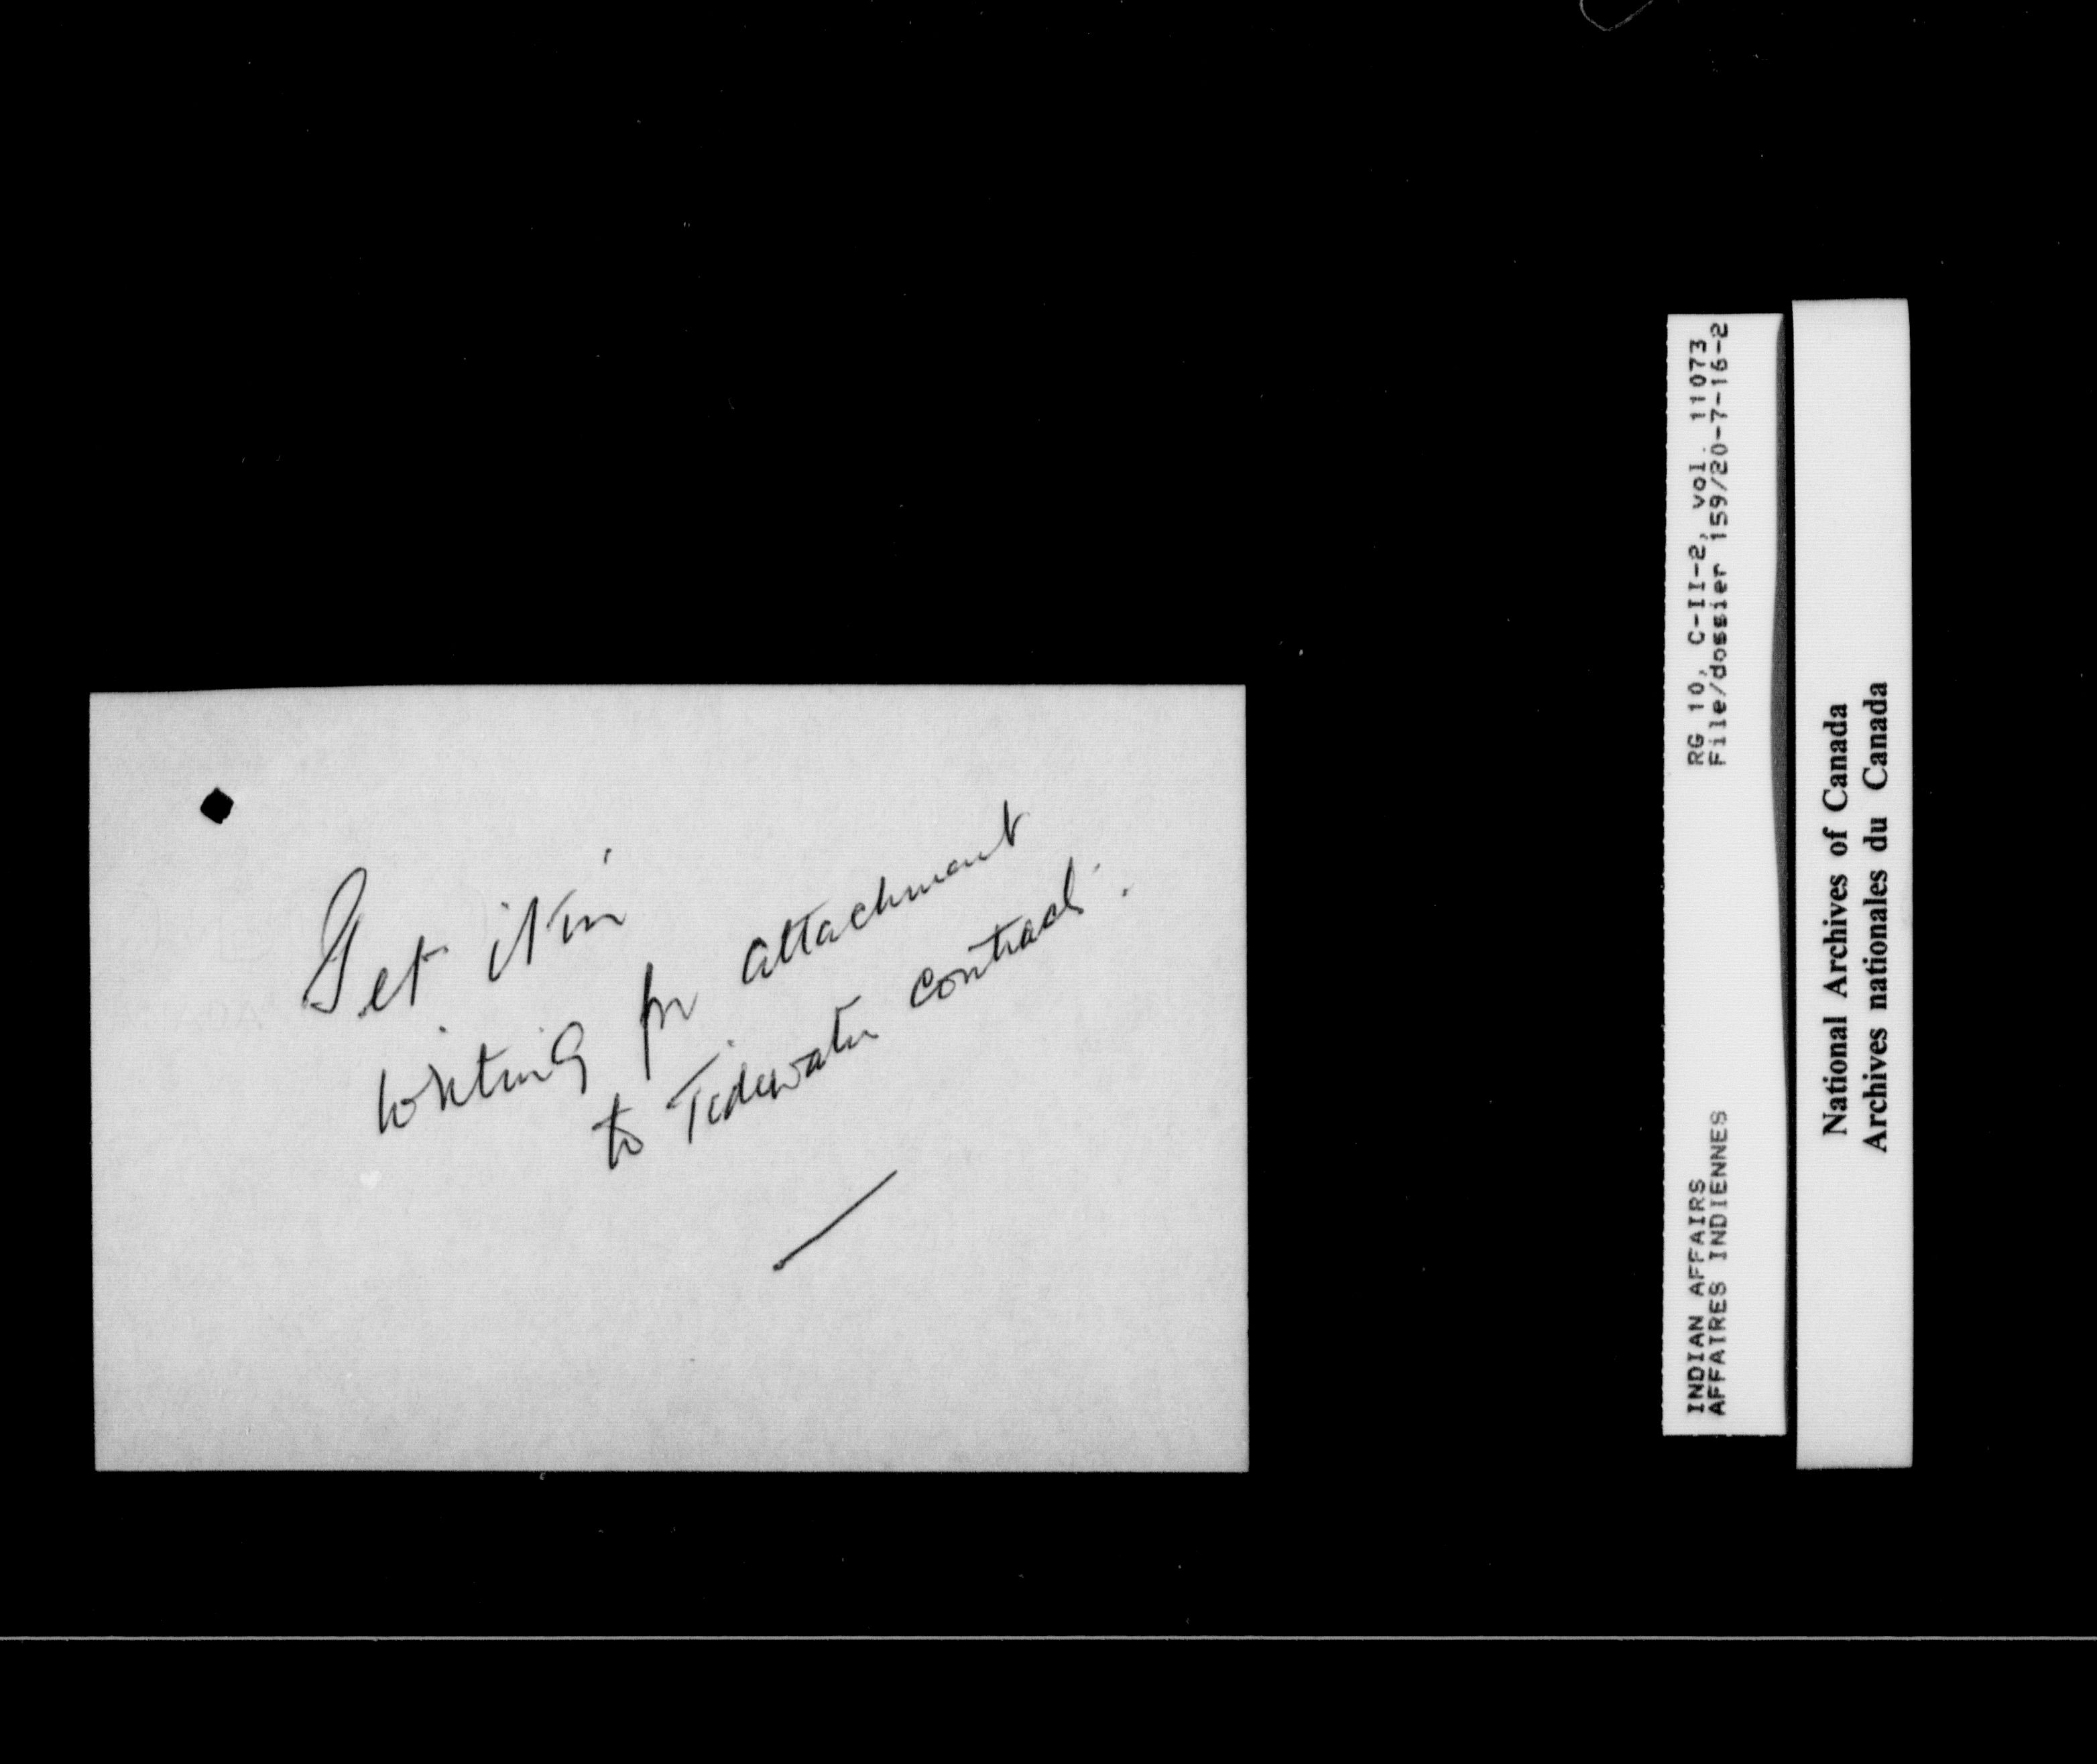 Get it in
writing for attachment
to Tidewater contract.
RG 10, C-II-2, vol. 11073
File/dossier 159/20-7-16-2
INDIAN AFFAIRS
AFFAIRES INDIENNES
National Archives of Canada
Archives nationales du Canada